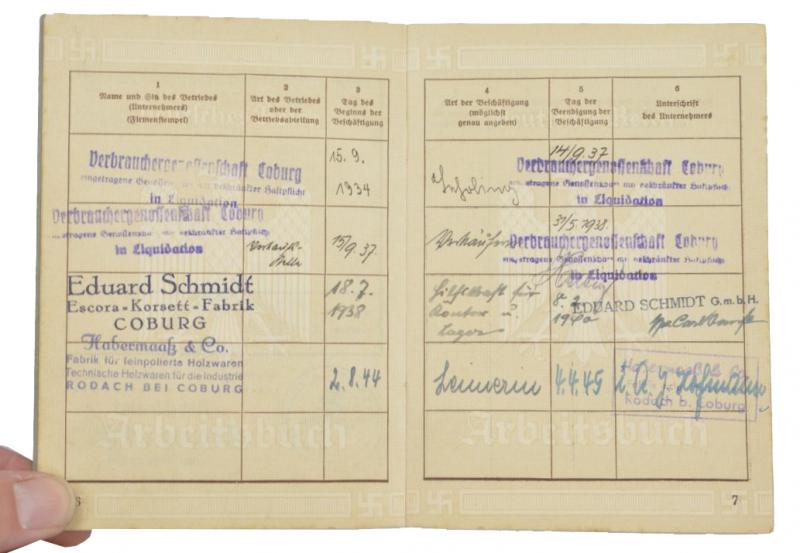 1
Name und Sitz des Betriebes
(Unternehmers)
(Firmenstempel)
2
Art des Betriebes
oder der
Betriebsabteilung
3
Tag des
Beginns der
Beschäftigung
Verbrauchergenossenschaft Coburg
eingetragene Genossenschaft mit beschränkter Haftpflicht
in Liquidation
15. 9.
1934
Verbrauchergenossenschaft Coburg
eingetragene Genossenschaft mit beschränkter Haftpflicht
in Liquidation
Verkaufs-
stelle
15/9.37.
Eduard Schmidt
Escora-Korsett-Fabrik
COBURG
18.7.
1938
Habermaaß & Co.
Fabrik für feinpolierte Holzwaren
Technische Holzwaren für die Industrie
RODACH BEI COBURG
2.8.44
Arbeitsbuch
6
4
Art der Beschäftigung
(möglichst
genau angeben)
5
Tag der
Beendigung der
Beschäftigung
6
Unterschrift
des Unternehmers
Lehrling
14/9.37
Verbrauchergenossenschaft Coburg
eingetragene Genossenschaft mit beschränkter Haftpflicht
in Liquidation
31/5.1938.
Verbrauchergenossenschaft Coburg
eingetragene Genossenschaft mit beschränkter Haftpflicht
in Liquidation
Hilfskraft für
Kontor u.
Lager
8.
1940
EDUARD SCHMIDT G.m.b.H.
4.4.45
Habermaaß & Co.
Rodach b. Coburg
Arbeitsbuch
7